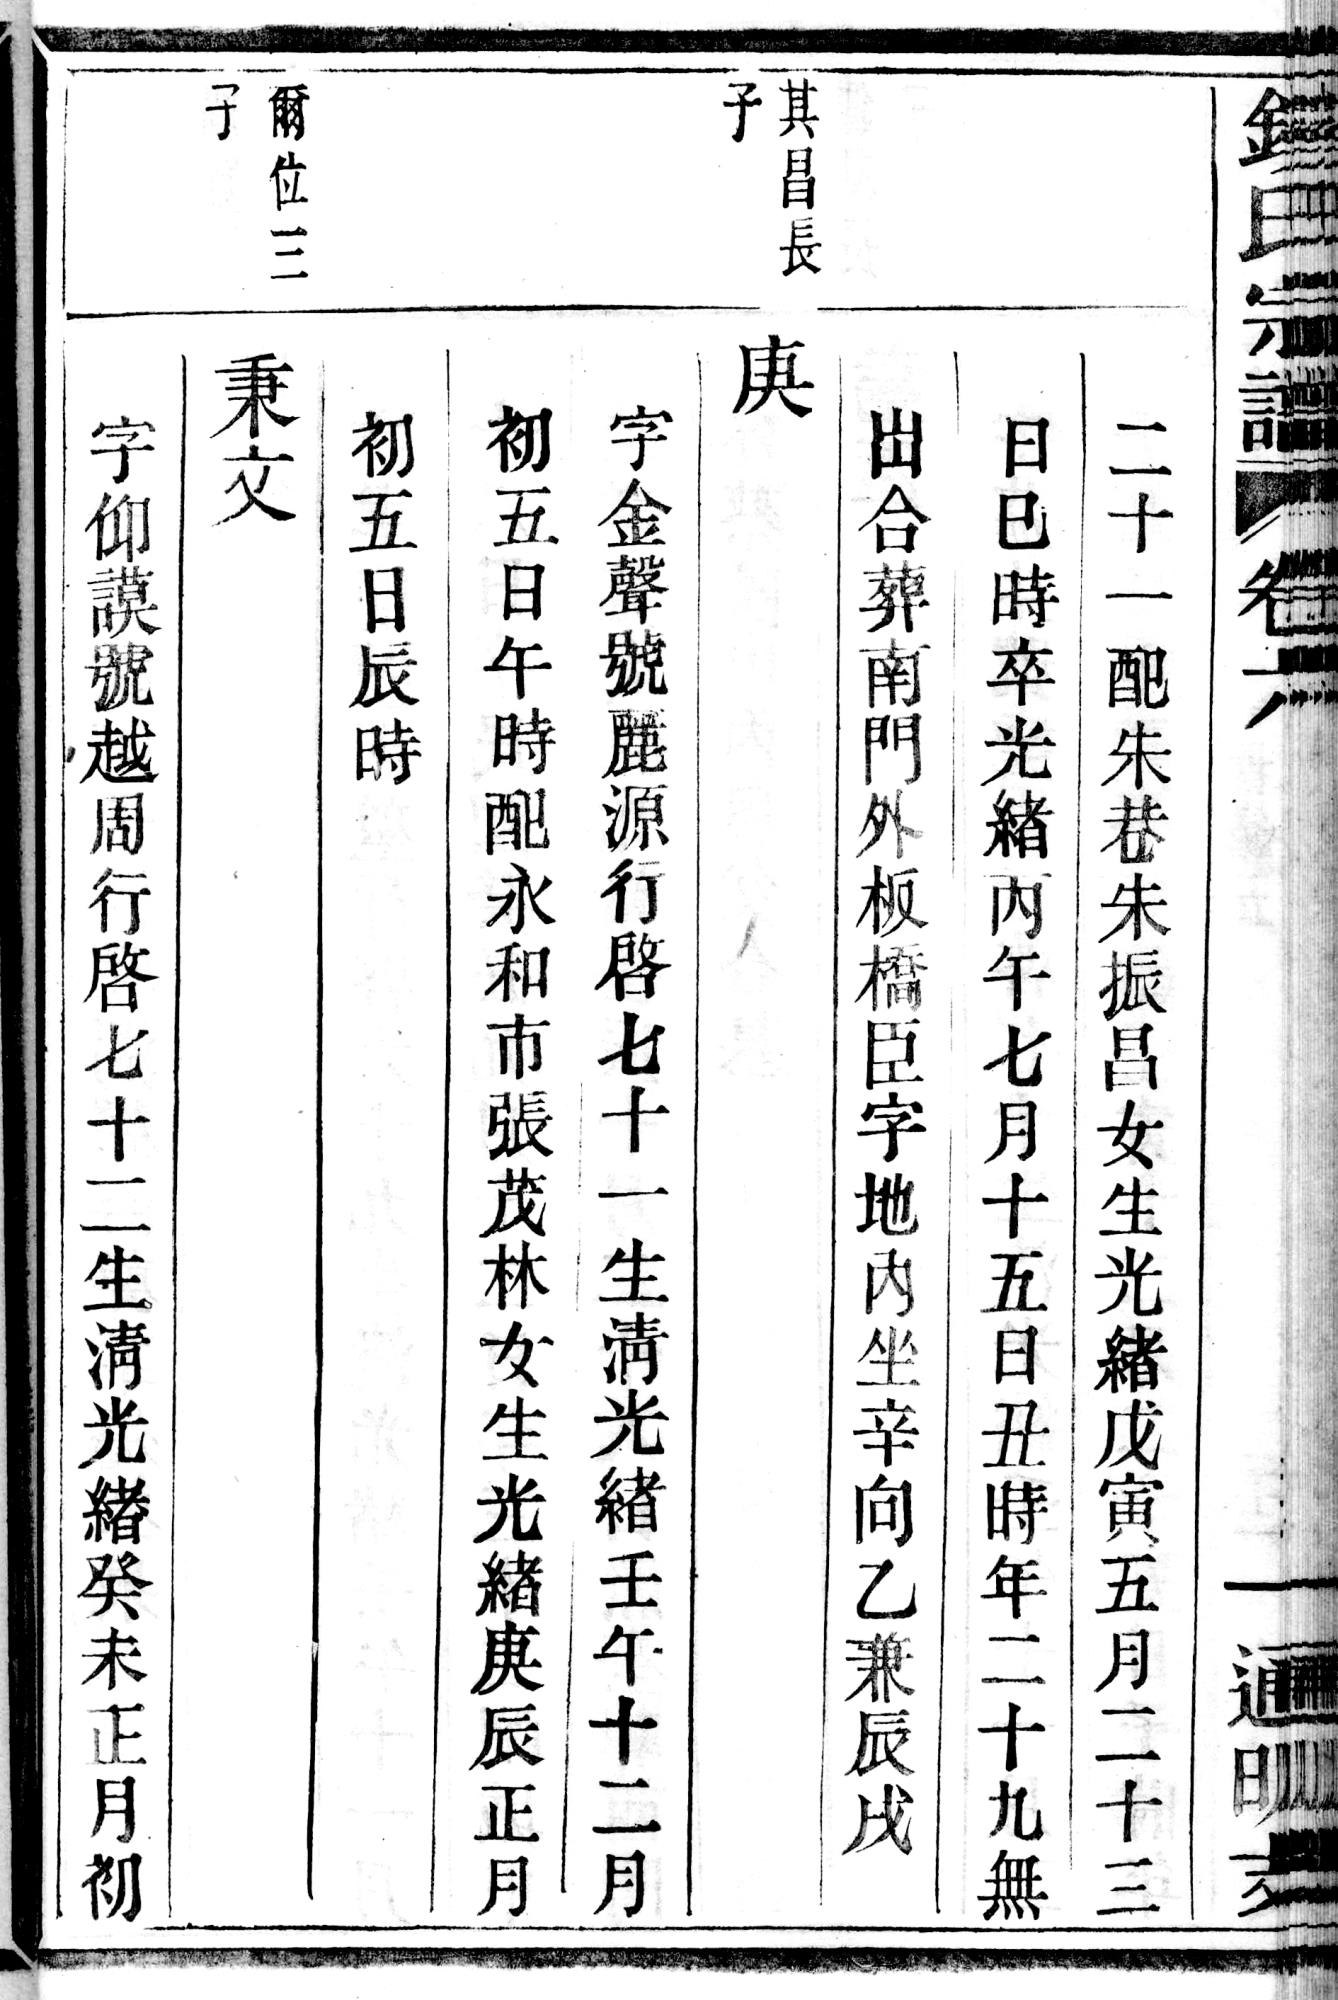 氏宗譜
卷六
通明支
二十一配朱巷朱振昌女生光緒戊寅五月二十三
日巳時卒光緒丙午七月十五日丑時年二十九無
出合葬南門外板橋臣字地內坐辛向乙兼辰戌
其昌長
子
庚
字金聲號麗源行啓七十一生清光緒壬午十二月
初五日午時配永和市張茂林女生光緒庚辰正月
初五日辰時
爾位三
子
秉文
字仰謨號越周行啓七十二生清光緒癸未正月初